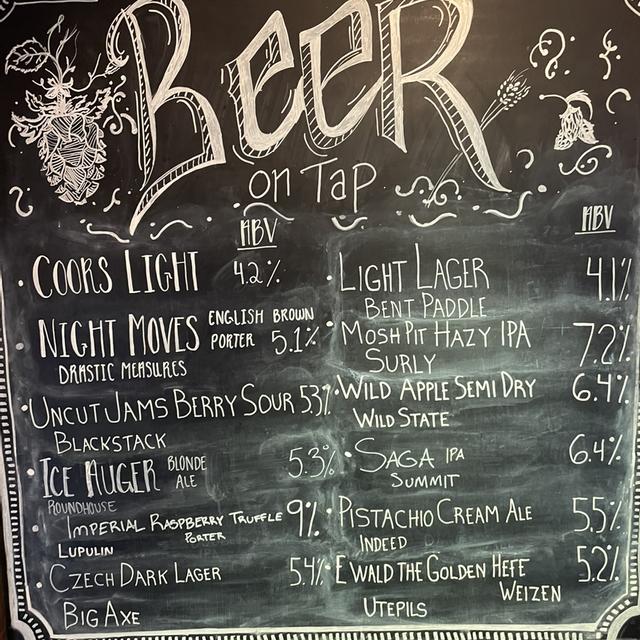 BEER
on TAP
ABV
COORS LIGHT 4.2%
NIGHT MOVES ENGLISH BROWN PORTER 5.1%
DRASTIC MEASURES
UNCUT JAMS BERRY SOUR 5.3%
BLACKSTACK
ICE AUGER BLONDE ALE 5.3%
ROUNDHOUSE
IMPERIAL RASPBERRY TRUFFLE PORTER 9%
LUPULIN
CZECH DARK LAGER 5.4%
BIG AXE
ABV
LIGHT LAGER 4.1%
BENT PADDLE
MOSH PIT HAZY IPA 7.2%
SURLY
WILD APPLE SEMI DRY 6.4%
WILD STATE
SAGA IPA 6.4%
SUMMIT
PISTACHIO CREAM ALE 5.5%
INDEED
EWALD THE GOLDEN HEFE 5.2%
WEIZEN
UTEPILS